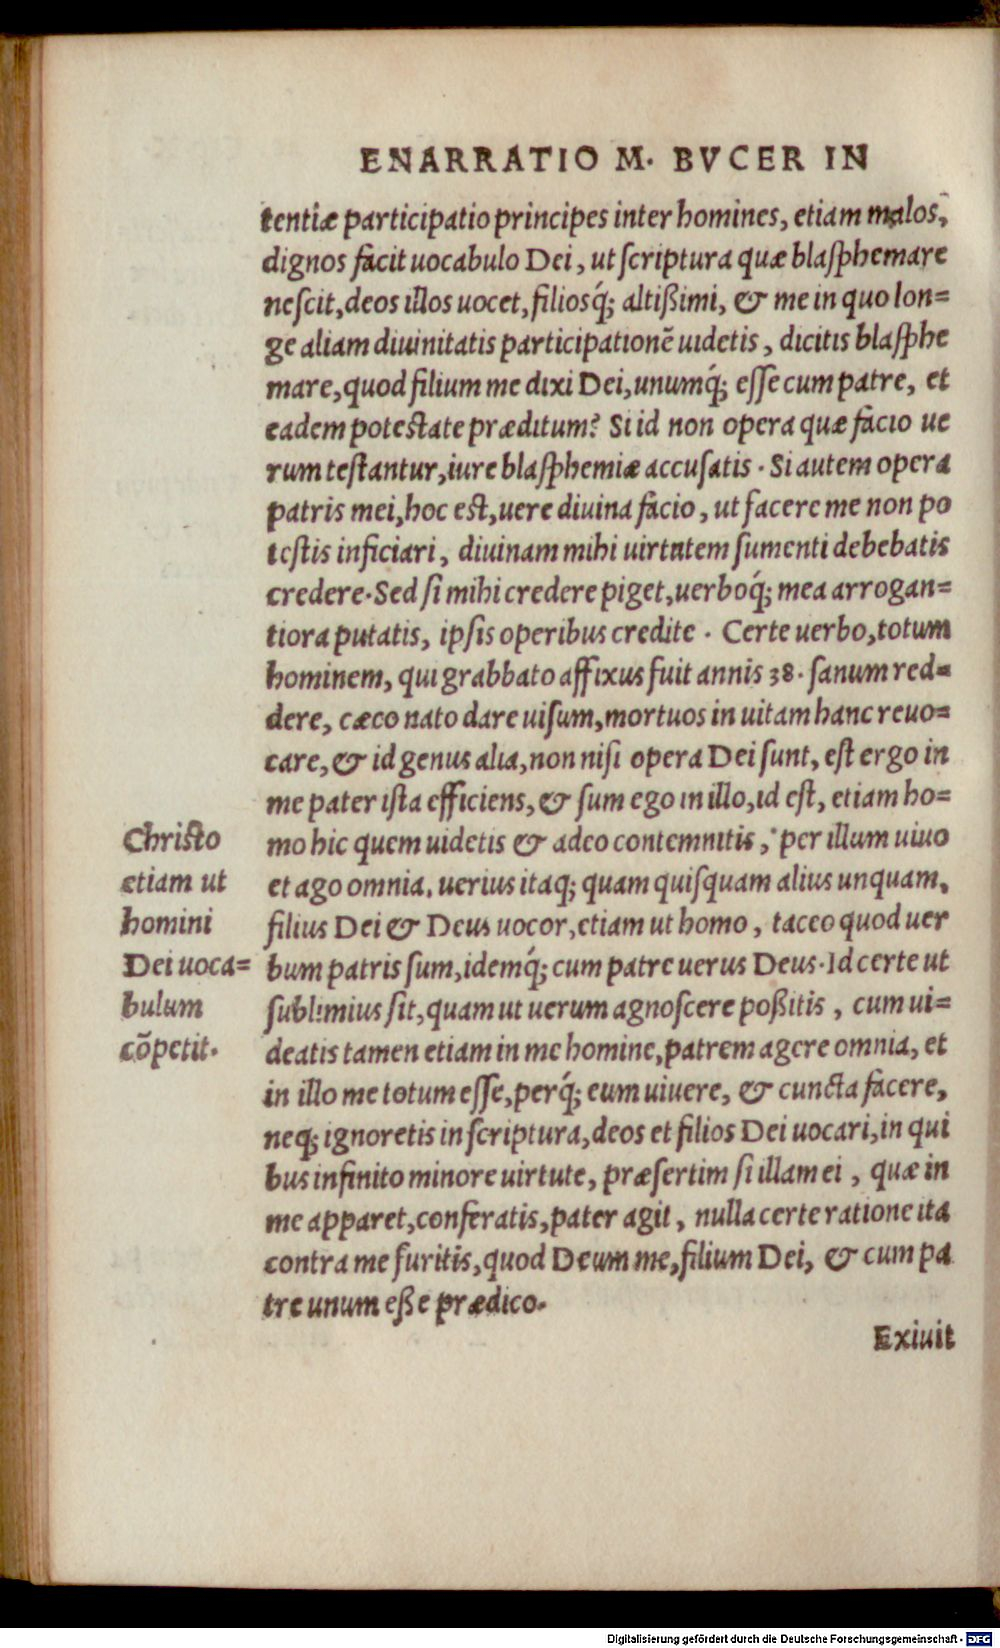 ENARRATIO M. BVCER IN
tentiæ participatio principes inter homines, etiam malos,
dignos facit uocabulo Dei, ut scriptura quæ blasphemare
nescit, deos illos uocet, filiosq́; altißimi, & me in quo lon=
ge aliam diuinitatis participationẽ uidetis, dicitis blasphe
mare, quod filium me dixi Dei, unumq́; esse cum patre, et
eadem potestate præditum? Si id non opera quæ facio ue
rum testantur, iure blasphemiæ accusatis. Si autem opera
patris mei, hoc est, uere diuina facio, ut facere me non po
testis inficiari, diuinam mihi uirtutem sumenti debebatis
credere. Sed si mihi credere piget, uerboq́; mea arrogan=
tiora putatis, ipsis operibus credite. Certe uerbo, totum
hominem, qui grabbato affixus fuit annis 38. sanum red=
dere, cæco nato dare uisum, mortuos in uitam hanc reuo=
care, & id genus alia, non nisi opera Dei sunt, est ergo in
me pater ista efficiens, & sum ego in illo, id est, etiam ho=
mo hic quem uidetis & adeo contemnitis, per illum uiuo
et ago omnia. uerius itaq; quam quisquam alius unquam,
filius Dei & Deus uocor, etiam ut homo, taceo quod uer
bum patris sum, idemq́; cum patre uerus Deus. Id certe ut
sublimius sit, quam ut uerum agnoscere poßitis, cum ui=
deatis tamen etiam in me homine, patrem agere omnia, et
in illo me totum esse, perq́; eum uiuere, & cuncta facere,
neq; ignoretis in scriptura, deos et filios Dei uocari, in qui
bus infinito minore uirtute, præsertim si illam ei, quæ in
me apparet, conferatis, pater agit, nulla certe ratione ita
contra me furitis, quod Deum me, filium Dei, & cum pa
tre unum eße prædico.
Exiuit
Christo
etiam ut
homini
Dei uoca=
bulum
cõpetit.
Digitalisierung gefördert durch die Deutsche Forschungsgemeinschaft - DFG